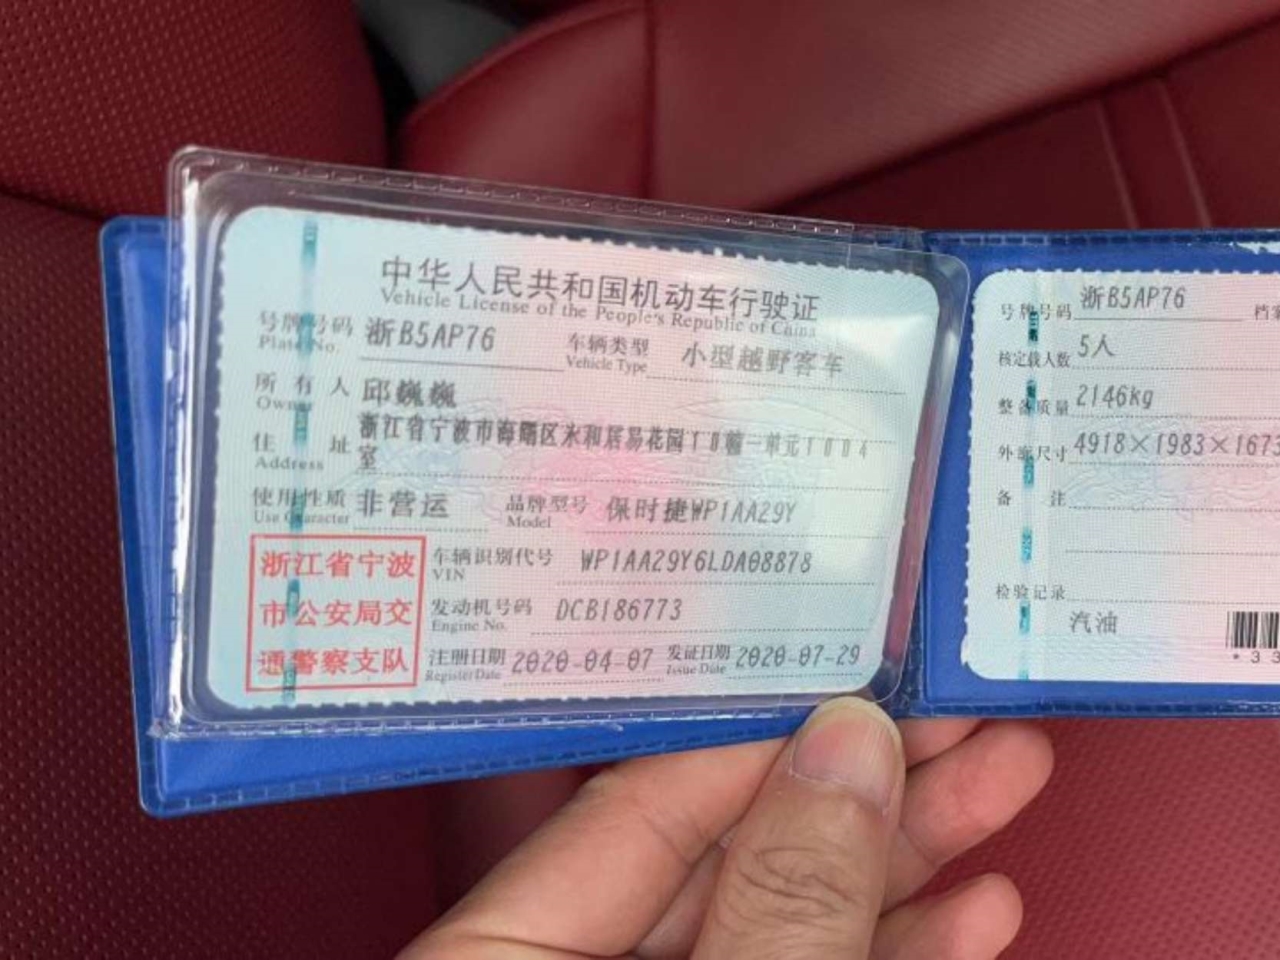 中华人民共和国机动车行驶证
Vehicle License of the People's Republic of China
号牌号码 浙B5AP76 车辆类型 小型越野客车
Plate No. Vehicle Type
所有人 邱巍巍
Owner
住址 浙江省宁波市海曙区永和居易花园10幢一单元1004
Address 室
使用性质 非营运 品牌型号 保时捷WP1AA29Y
Use Character Model
浙江省宁波
市公安局交
通警察支队
车辆识别代号 WP1AA29Y6LDA08878
VIN
发动机号码 DCB186773
Engine No.
注册日期 2020-04-07 发证日期 2020-07-29
Register Date Issue Date
号牌号码 浙B5AP76 档案
核定载人数 5人
整备质量 2146kg
外廓尺寸 4918×1983×1673
备注
检验记录
汽油
*33